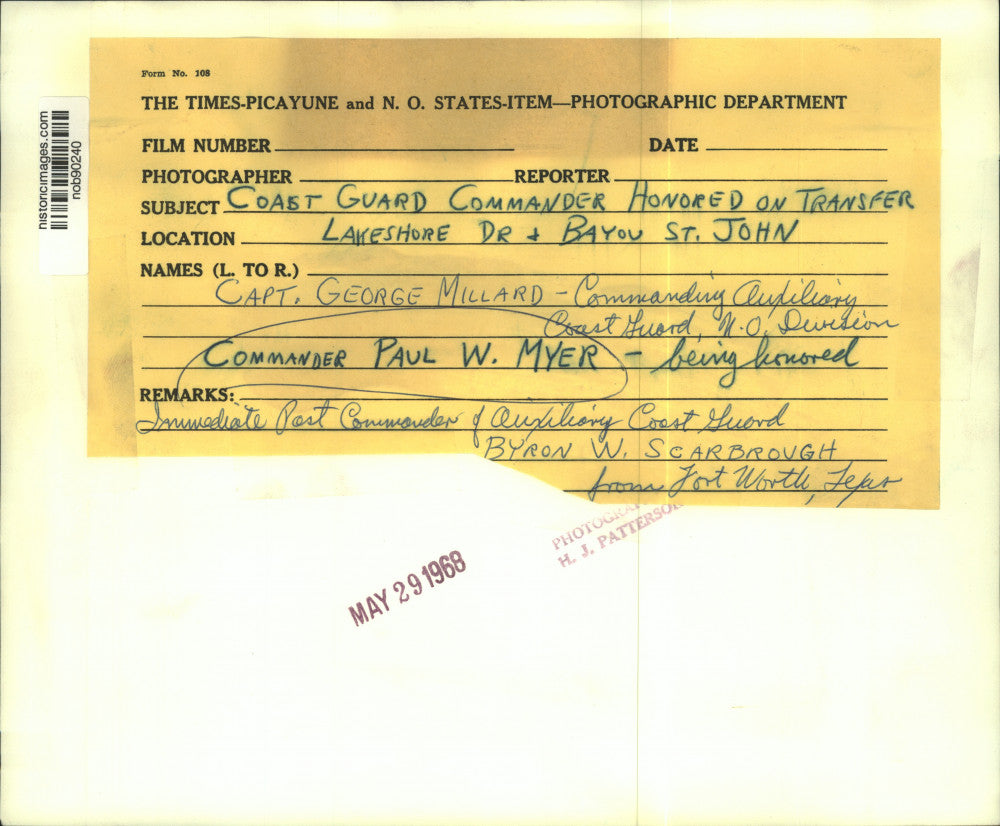 historicimages.com
nob90240
Form No. 108
THE TIMES-PICAYUNE and N. O. STATES-ITEM—PHOTOGRAPHIC DEPARTMENT
FILM NUMBER DATE
PHOTOGRAPHER REPORTER
SUBJECT COAST GUARD COMMANDER HONORED ON TRANSFER
LOCATION LAKESHORE DR + BAYOU ST. JOHN
NAMES (L. TO R.)
CAPT. GEORGE MILLARD - Commanding Auxiliary
Coast Guard, N.O. Division
COMMANDER PAUL W. MYER - being honored
REMARKS:
Immediate Past Commander of Auxiliary Coast Guard
BYRON W. SCARBROUGH
from Fort Worth, Texas
H. J. PATTERSON
MAY 29 1968